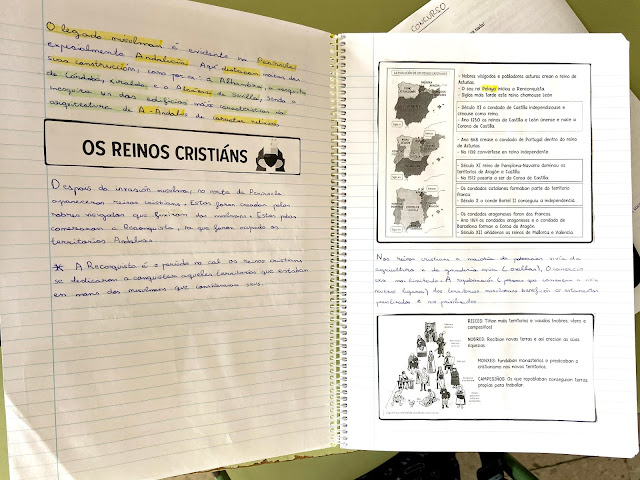 CONCURSO
O legado musulmán é evidente na Península
especialmente Andalucía. Aquí destacan moitas das
súas construcións, como por ex: a Alhambra, a mezquita
de Córdoba, xiralda, e o Alcázar de Sevilla, sendo a
mezquita un dos edificios máis
arquitectura de A-Andalus de carácter relixioso.
OS REINOS CRISTIÁNS
Despois da invasión musulma, no norte da Península
apareceron reinos cristiáns. Estos foron creados polos
nobres visigodos que fuxiran dos musulmáns. Estos
comezaron a Reconquista, xa que foron ocupado os
territorios Andalusís.
* A Reconquista é o período no cal os reinos cristiáns
se dedicaron a conquistar aqueles territorios que estaban
en mans dos musulmáns que consideraban seus.
LA EVOLUCIÓN DE LOS REINOS CRISTIANOS
- Nobres visigodos e poboadores astures crean o reino de
Asturias.
- O seu rei Pelayo iniciou a Reconquista
- Siglos más tarde este reino chamouse León
- Século XI o condado de Castilla independizouse e
creouse como reino.
- Ano 1230 os reinos de Castilla e León únense e nace a
Corona de Castilla.
- Ano 868 crease o condado de Portugal dentro do reino
de Asturias
- No 1139 convértese en reino independente
- Século XI reino de Pamplona-Navarra dominou os
territorios de Aragón e Castilla
- No 1512 pasaría a ser da Coroa de Castilla
- Os condados cataláns formaban parte do territorio
franco
- Século X o conde Borrell II conseguiu a independencia.
- Os condados aragoneses foron dos francos
- Ano 1164 os condados aragoneses e o condado de
Barcelona forman a Coroa de Aragón.
- Século XIII añádense os reinos de Mallorca e Valencia.
Nos reinos cristiáns a maioría da poboación vivía da
agricultura e da gandería ovina (ovellas), O comercio
era moi limitado. A repoboación (persoas que comezan a vivir
novos lugares) dos territorios musulmáns beneficiou os estamentos
privilexiados e non privilexiados.
REISES: Tiñan máis territorios e vasalos (nobres, clero e
campesiños)
NOBRES: Recibían novas terras e así crecían as súas
riquezas.
MONXES: Fundaban monasterios e predicaban o
cristianismo nos novos territorios.
CAMPESIÑOS: Os que repoblaban conseguían terras
propias para traballar.